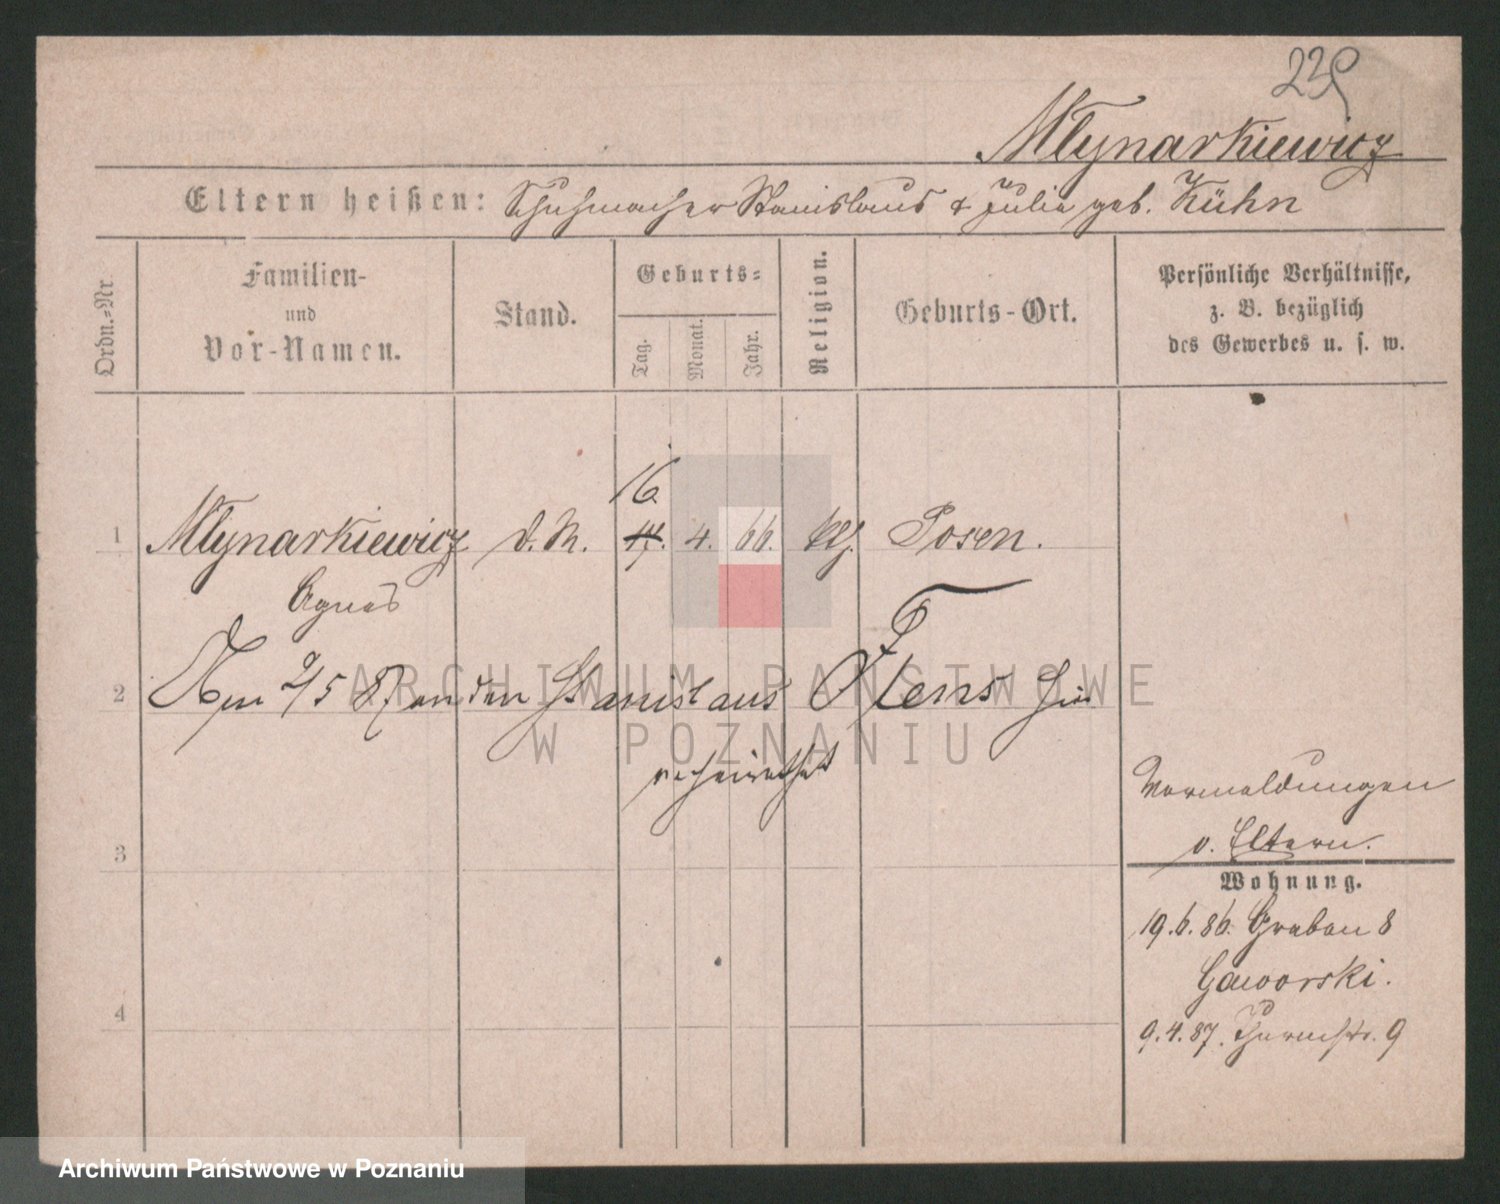 225
Młynarkiewicz
Eltern heißen: Schuhmacher Stanislaus & Julie geb. Kühn
Ordn.=Nr.
Familien-
und
Vor-Namen.
Stand.
Geburts=
Tag.
Monat.
Jahr.
Religion.
Geburts-Ort.
Persönliche Verhältnisse,
z. B. bezüglich
des Gewerbes u. s. w.
16.
1 Młynarkiewicz d. M. 4. 66. Posen.
Agnes
2 Am 2/5 87 an den Stanislaus hier
verheirathet
Vermeldungen
v. Eltern.
3
Wohnung.
19.6.86. Graben 8
Gaworski.
4
9.4.87. Thurmstr. 9
ARCHIWUM PAŃSTWOWE
W POZNANIU
Archiwum Państwowe w Poznaniu